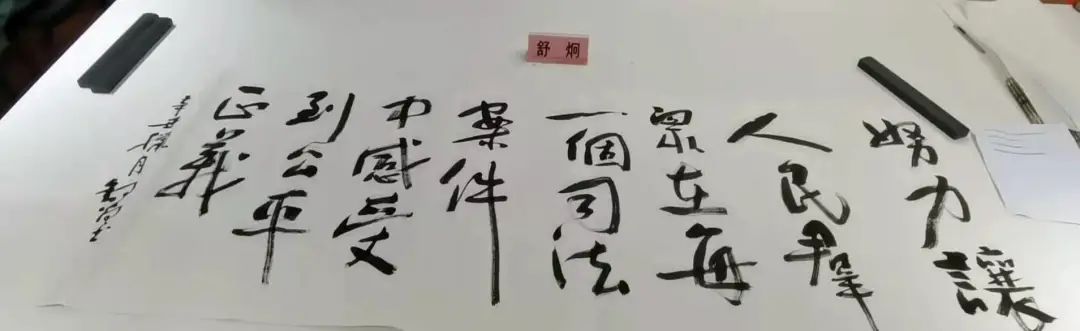 舒炯
努力讓
人民群
眾在每
一個司法
案件
中感受
到公平
正義